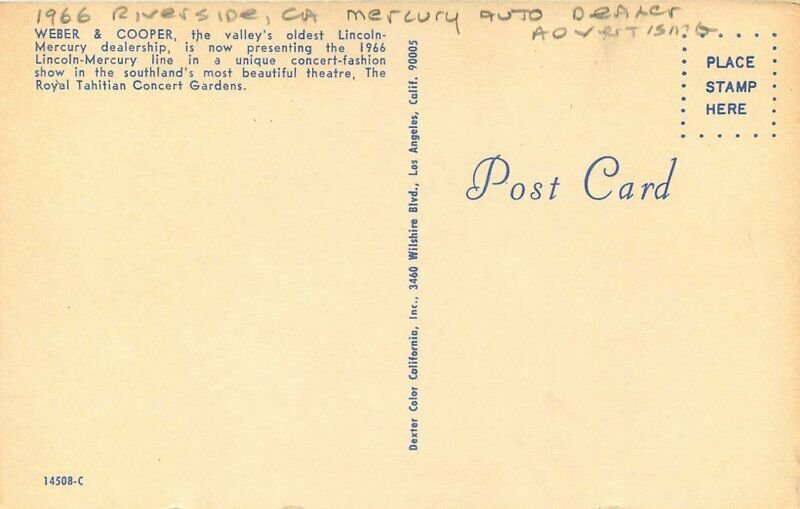 1966 RIVERSIDE, CA MERCURY AUTO DEALER
ADVERTISING
WEBER & COOPER, the valley's oldest Lincoln-
Mercury dealership, is now presenting the 1966
Lincoln-Mercury line in a unique concert-fashion
show in the southland's most beautiful theatre, The
Royal Tahitian Concert Gardens.
PLACE
STAMP
HERE
Post Card
Dexter Color California, Inc., 3460 Wilshire Blvd., Los Angeles, Calif. 90005
14508-C